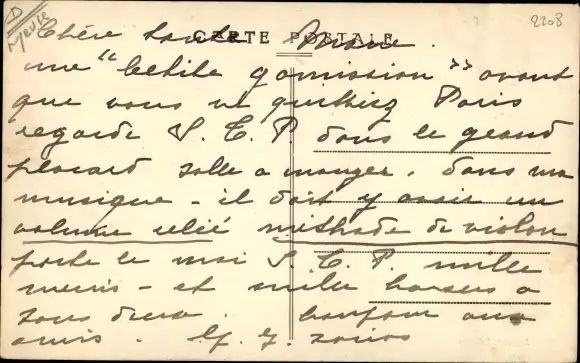 D
Meuse
2208
CARTE POSTALE
Chère tante
une "betite gomission" avant
que vous ne quittiez Paris
regarde S. T. P. dans le grand
placard salle a manger, dans ma
musique - il doit y avoir un
volume relié méthode de violon
porte le moi S. T. P. mille
mercis - et mille baisers a
tous deux. bonjour aux
amis.